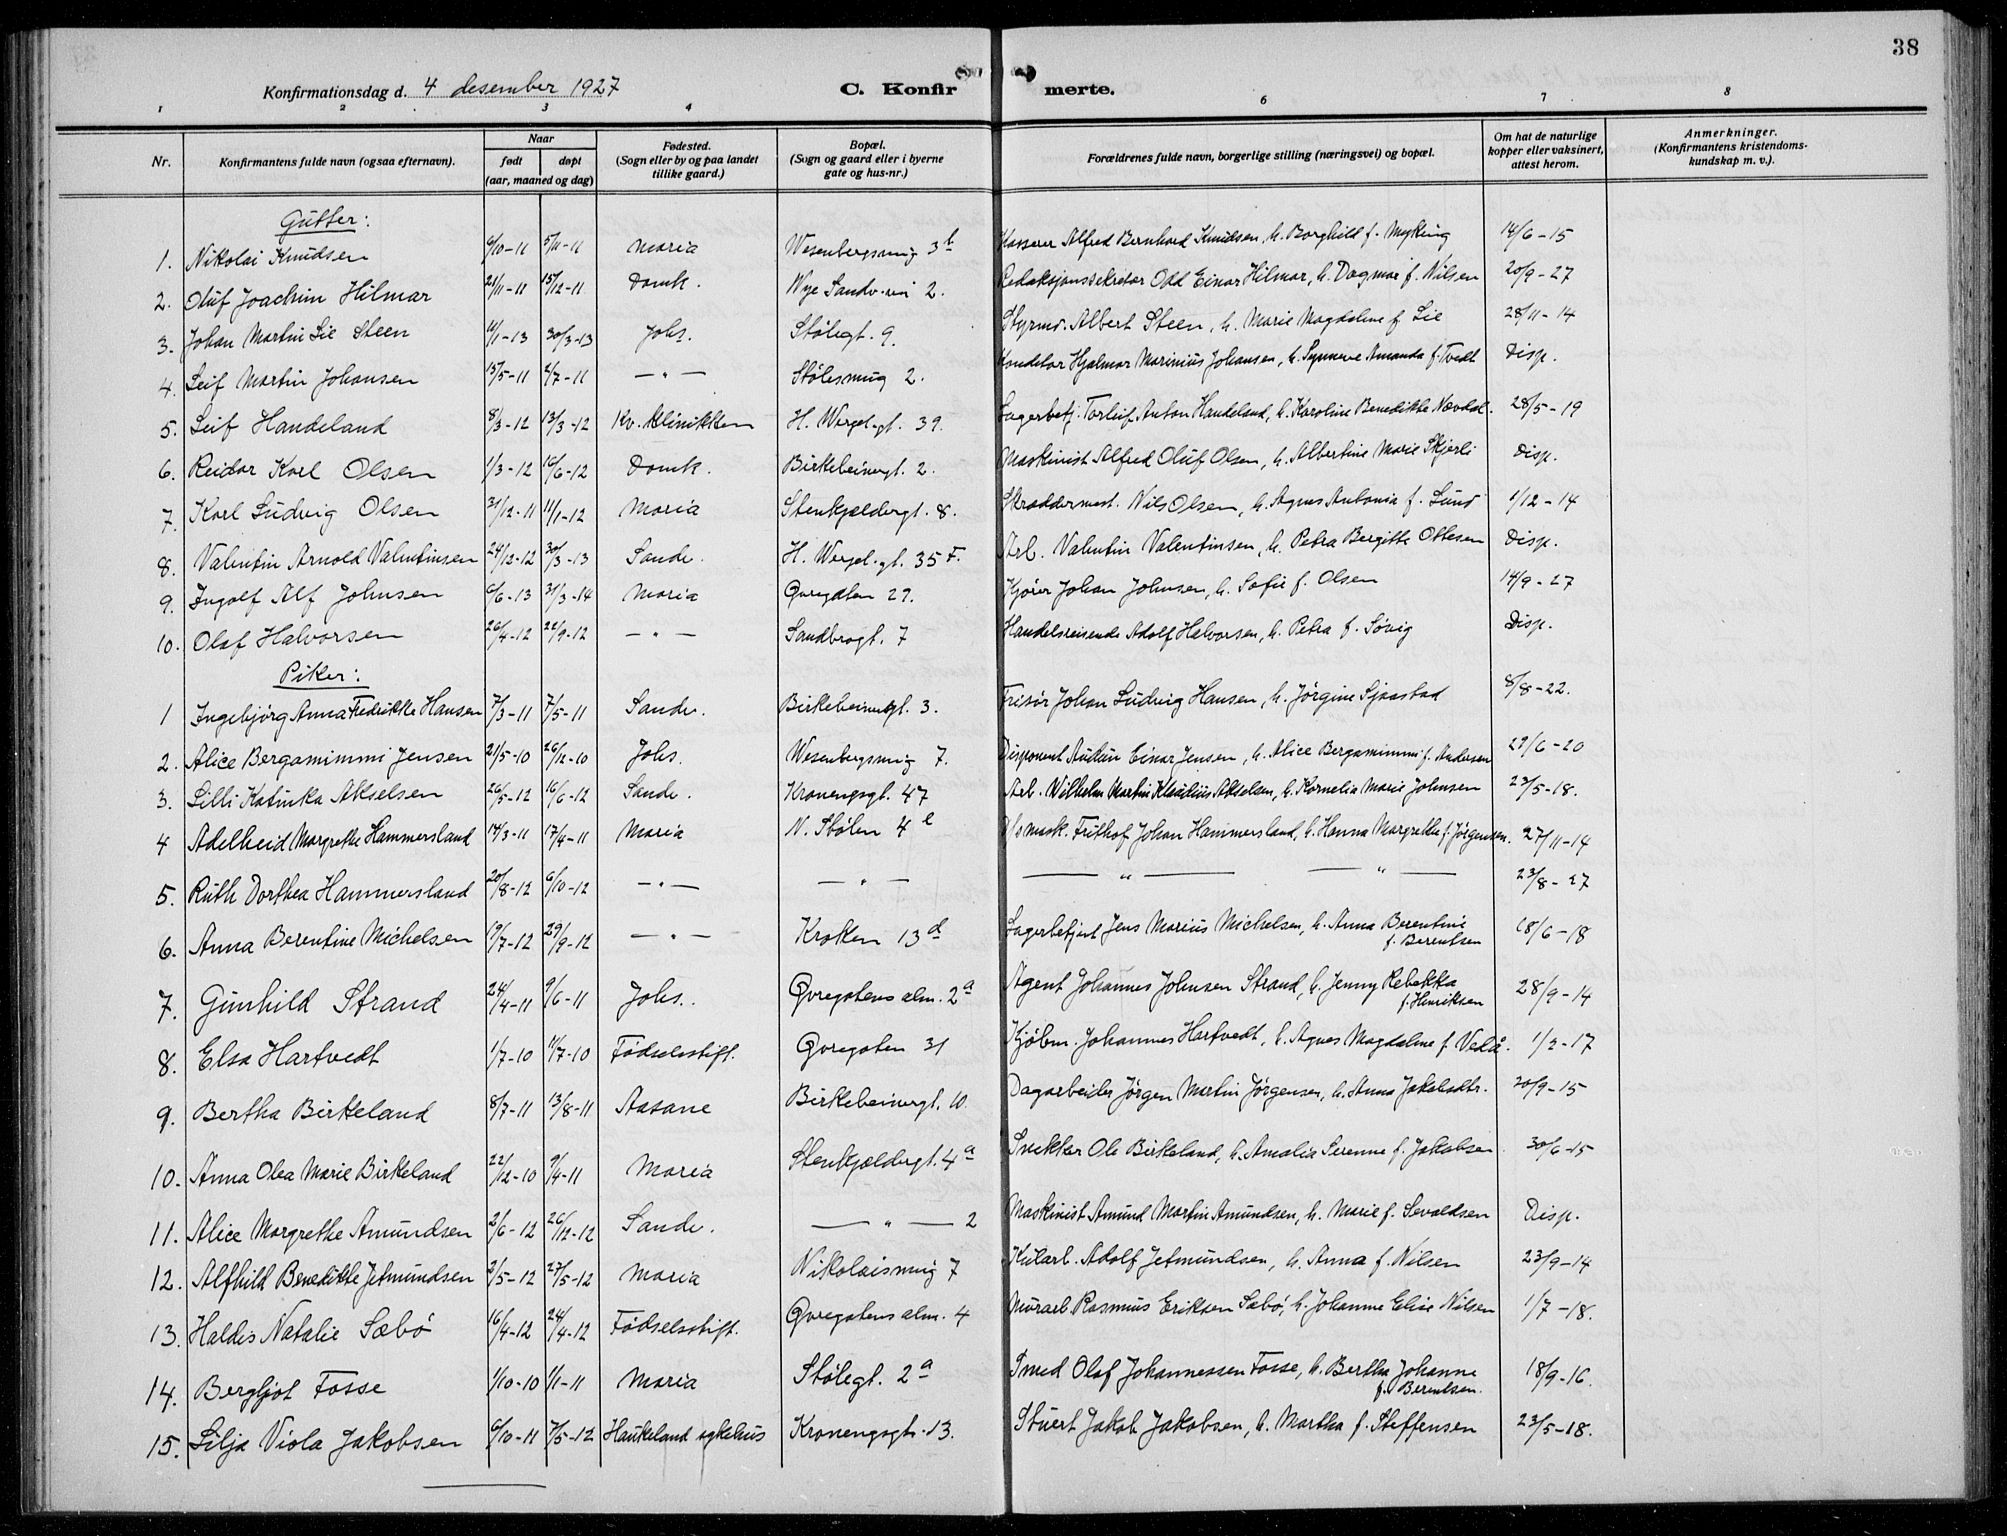 38
Konfirmationsdag d. 4 desember 1927
C. Konfirmerte.
1 2 3 4 6 7 8
Nr. Konfirmantens fulde navn (ogsaa efternavn). Naar født døpt (aar, maaned og dag) Fødested. (Sogn eller by og paa landet tillike gaard.) Bopæl. (Sogn og gaard eller i byerne gate og hus-nr.) Forældrenes fulde navn, borgerlige stilling (næringsvei) og bopæl. Om hat de naturlige kopper eller vaksinert, attest herom. Anmerkninger. (Konfirmantens kristendomskundskap m. v.).
Gutter:
1. Nikolai Knudsen 6/10-11 5/11-11 Maria Wesenbergsmug 3b Kasserer Alfred Bernhard Knudsen, h. Borghild f. Myking 14/6-15
2. Oluf Joachim Hilmar 21/11-11 15/12-11 Domk. Nye Sandv.vei 2. Redaksjonssekretær Odd Einar Hilmar, h. Dagmar f. Nilsen 20/9-27
3. Johan Martin Lie Steen 11/1-13 30/3-13 Johs. Stølegt. 9. Styrm. Albert Steen, h. Marie Magdalene f. Lie 28/11-14
4. Leif Martin Johansen 15/5-11 2/7-11 — " — Stølesmug 2. Konditor Hjalmar Marinius Johansen, h. Synneve Amanda f. Tvedt Disp.
5. Leif Handeland 8/3-12 13/3-12 Kv. klinikken H. Wergel.gt. 39. Lagerbetj. Torleif Anton Handeland, h. Karoline Benedikte Nævdal. 28/5-19
6. Reidar Karl Olsen 1/3-12 16/6-12 Domk. Birkebeinergt. 2. Maskinist Alfred Oluf Olsen, h. Albertine Marie Skjerli Disp.
7. Karl Ludvig Olsen 31/12-11 11/1-12 Maria Stenkjeldergt. 8. Skræddermest. Nils Olsen, h. Agnes Antonia f. Lund 1/12-14
8. Valentin Arnold Valentinsen 24/12-12 30/3-13 Sandv. H. Wergel.gt. 35 F. Arb. Valentin Valentinsen, h. Petra Bergitte Ottesen Disp.
9. Ingolf Alf Johnsen 6/6-13 31/3-14 Maria Øvregaten 29. Kjører Johan Johnsen, h. Sofie f. Olsen 14/9-27
10. Olaf Halvorsen 26/4-12 22/9-12 — " — Sandbrogt. 7 Handelsreisende Adolf Halvorsen, h. Petra f. Søvig Disp.
Piker:
1 Ingebjørg Anna Fredrikke Hansen 7/3-11 7/5-11 Sandv. Birkebeinergt. 3. Frisør Johan Ludvig Hansen, h. Jørgine Sjaastad 8/8-22.
2. Alice Bergamimmi Jensen 21/5-10 26/12-10 Johs. Wesenbergsmug 7. Disponent Audun Einar Jensen, h. Alice Bergamimmi f. Andersen 29/6-20
3. Lilli Katinka Akselsen 26/5-12 16/6-12 Sandv. Kroneng­sgt. 47 Arb. Wilhelm Martin Klaudius Akselsen, h. Kornelia Marie Johnsen 23/5-18.
4 Adelheid Margrethe Hammersland 14/3-11 17/4-11 Maria N. Stølen 4e Frithof Johan Hammersland, h. Hanna Margrethe f. Jørgensen. 27/11-14
5. Ruth Dorthea Hammersland 20/8-12 6/10-12 — " — — " — — " — — " — 23/8-27
6. Anna Berentine Michelsen 19/7-12 29/9-12 — " — Kroken 13d Lagerbetjent Jens Marius Michelsen, h. Anna Berentine f. Berentsen 18/6-18
7. Gunhild Strand 24/4-11 9/6-11 Johs. Øvregatens alm. 2a Agent Johannes Johnsen Strand, h. Jenny Rebekka f. Henriksen 28/9-14
8. Elsa Hartvedt 1/7-10 11/7-10 Fødselsstift. Øvregaten 31 Kjøbm. Johannes Hartvedt, h. Agnes Magdalene f. Vedå. 1/2-17
9. Bertha Birkeland 8/7-11 13/8-11 Aasane Birkebeinergt. 10. Dagarbeider Jørgen Martin Jørgensen, h. Anna Jakobsdtr. 20/9-15
10. Anna Olea Marie Birkeland 22/12-10 9/4-11 Maria Stenkjeldergt. 4a Snekker Ole Birkeland, h. Amalia Serenne f. Jakobsen 30/6-15
11. Alice Margrethe Amundsen 2/6-12 26/12-12 Sandv. — " — 2 Maskinist Amund Martin Amundsen, h. Marie f. Sevaldsen Disp.
12. Alfhild Benedikte Jetmundsen 2/5-12 27/5-12 Maria Nikolaismug 7 Kularb. Adolf Jetmundsen, h. Anna f. Nilsen 23/9-14
13. Haldis Natalie Sæbø 16/4-12 24/4-12 Fødselsstift. Øvregatens alm. 4 Murarb. Rasmus Eriksen Sæbø, h. Johanne Elise Nilsen 1/7-18.
14. Bergljot Fosse 1/10-10 1/1-11 Maria Stølegt. 2a Smed Olaf Johannessen Fosse, h. Bertha Johanne f. Berentsen. 18/9-16.
15. Silja Viola Jakobsen 6/10-11 7/5-12 Haukeland sykehus Kronengsgt. 13. Stuert Jakob Jakobsen, h. Martha f. Steffensen 23/5-18.